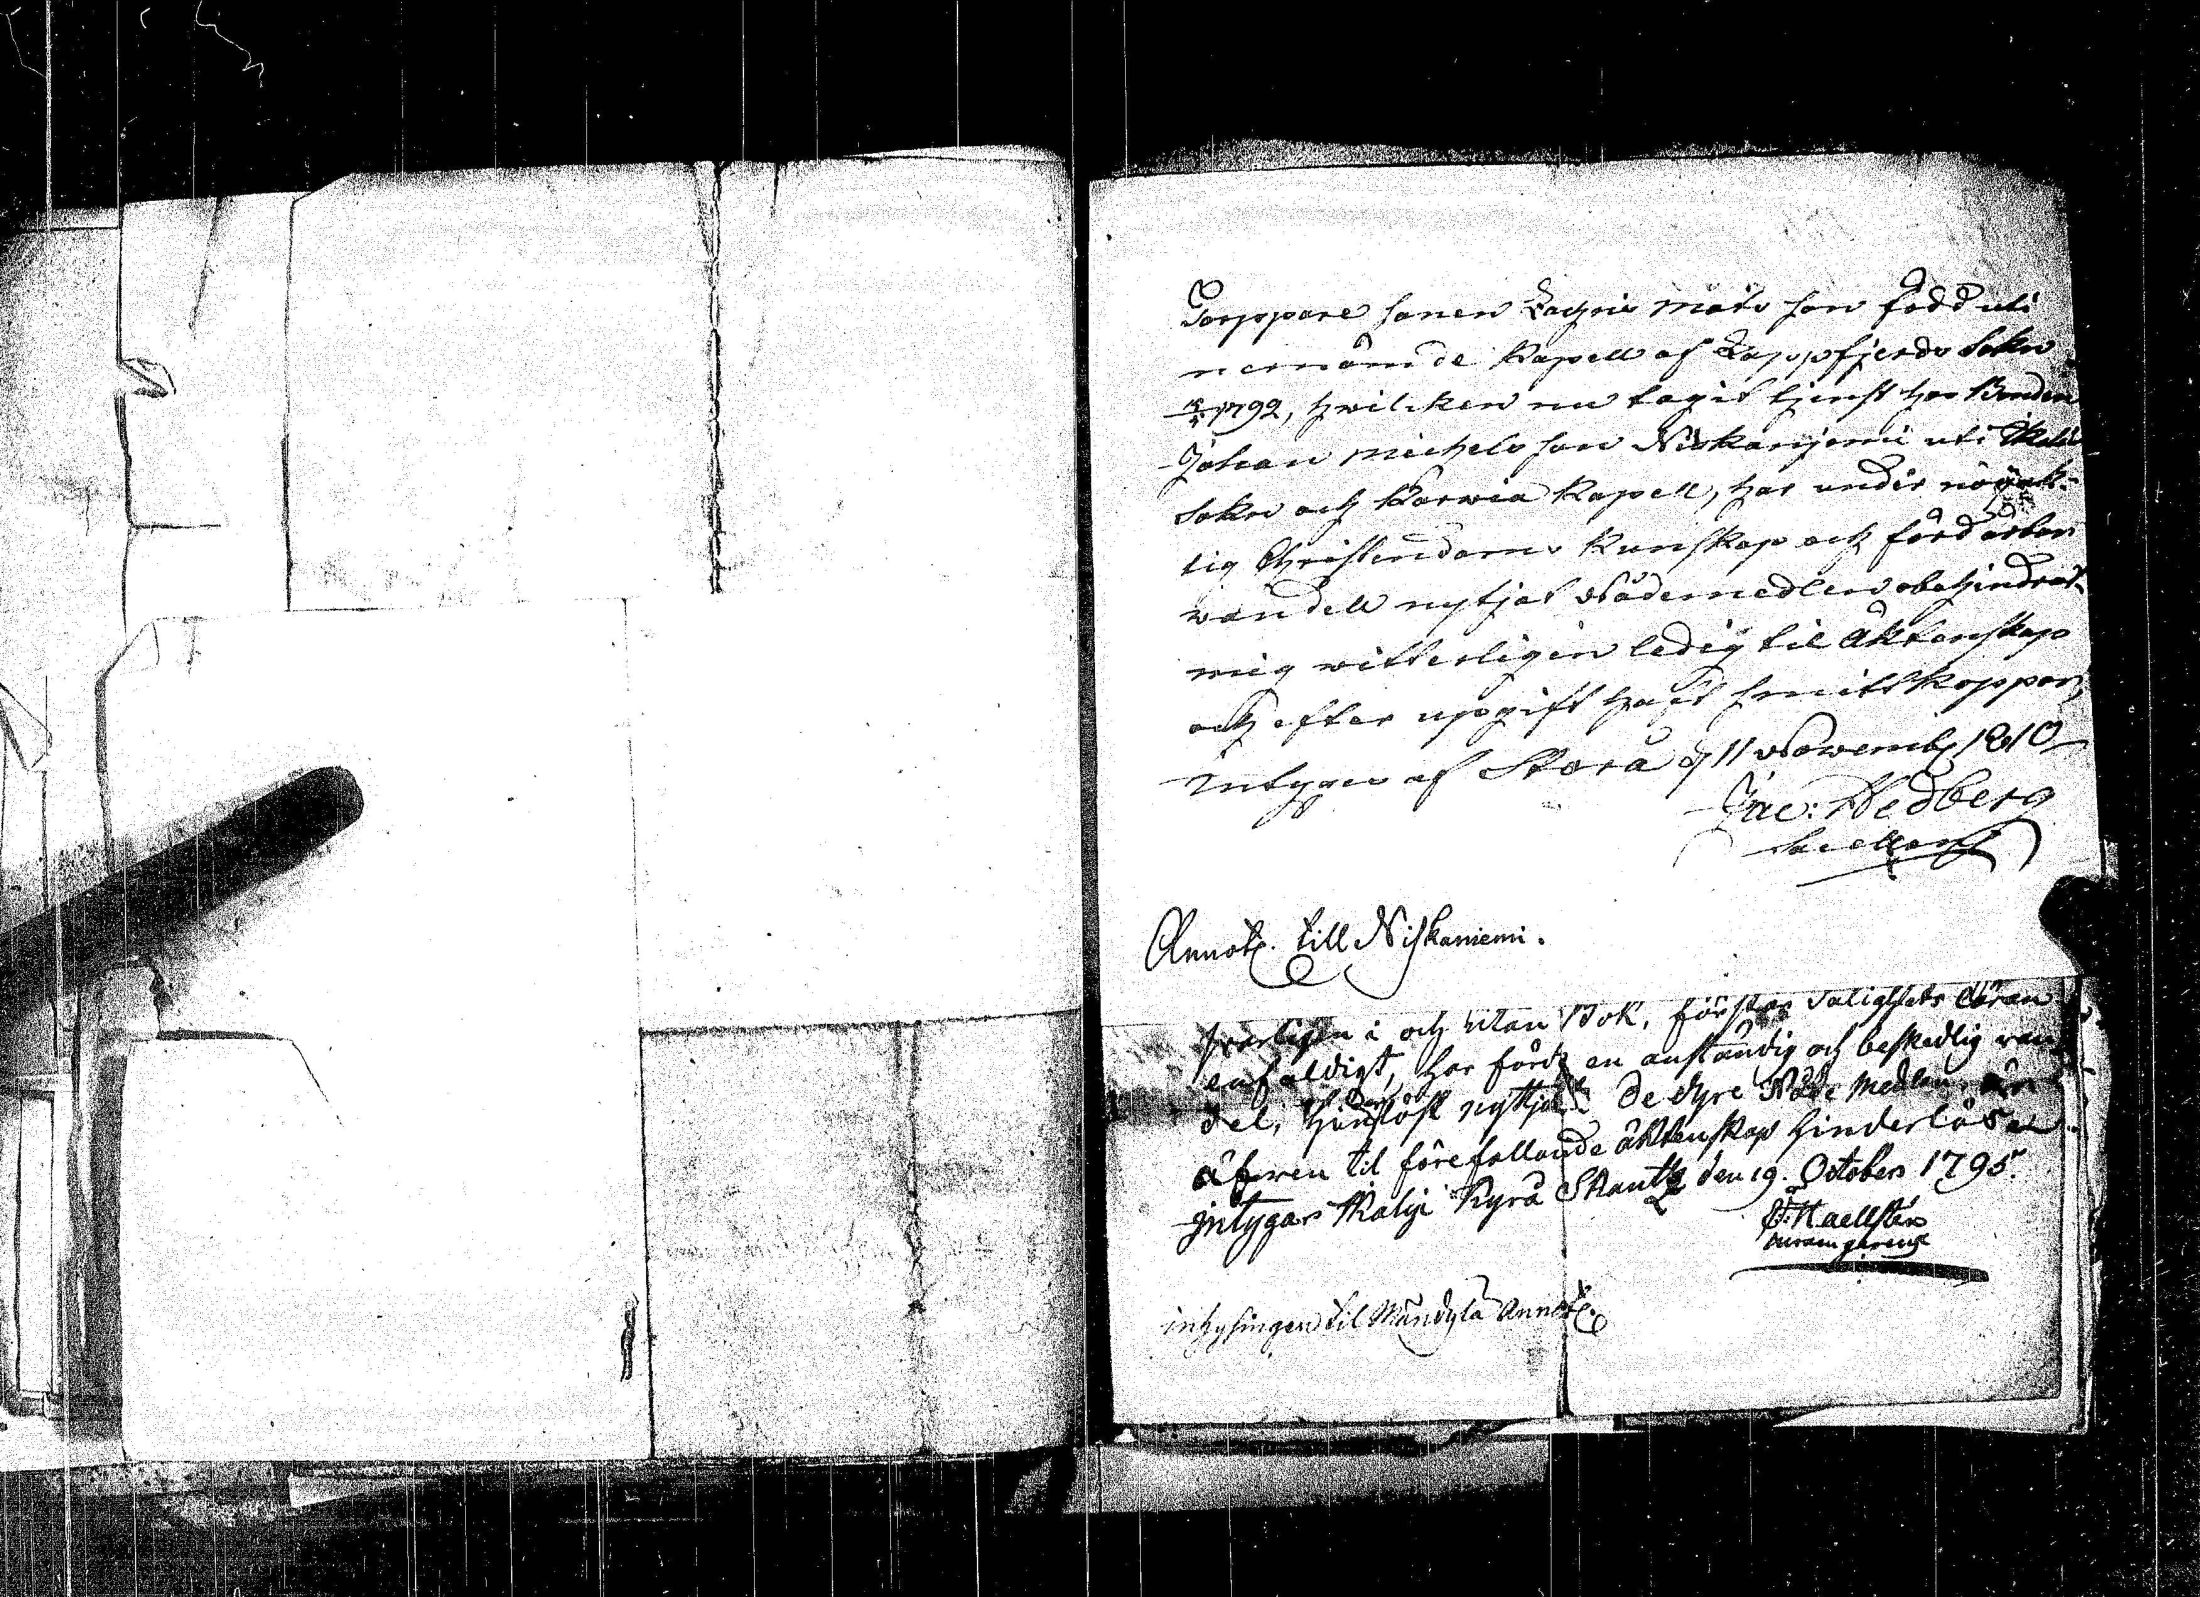 Torppare sonen Zachris Mats son född uti
nernämde Kapell af Lappfjerds Sokn
1792, hwilcken nu tagit tjenst hos Bonden
Johan Michels son Niskanjemi uti Ikalis
Sokn och Karwia Kapell, har under nöjack-
tig Christendoms Kunskap och förd ärbar
wandell nytjat Nådemedlen obehindrat,
mig witterligen ledig til Äktenskap
och efter uppgift haft Smittkoppor,
Intygar af Storå d 11 Novemb 1810
Jac: Hedberg
Sacellan
Annot. till Niskaniemi.
i och utan Bok, förstår Salighets läran
enfaldigt, har fört en anständig och beskedlig wan-
del, nyttjat de dyre Nåde Medlen, är
äfwen til förefallande äktenskap hinderlös
Intygar Ikalis Kyrå Skantz den 19. October 1795.
Haellsten
inhysingen til Mändylä Annot.